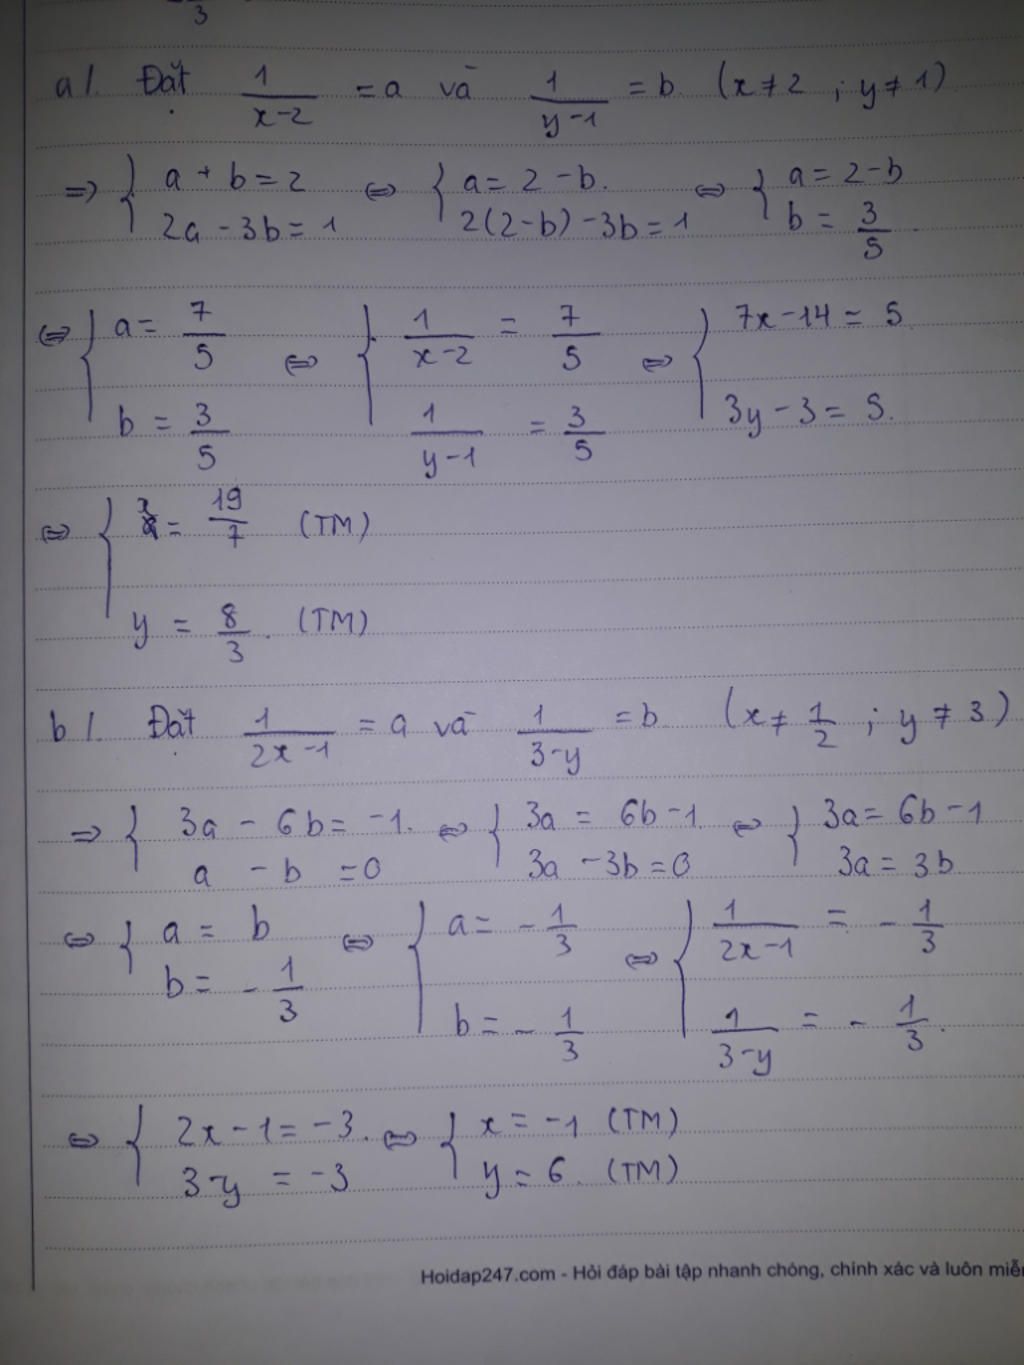 3
a/. Đặt 1/(x-2) = a và 1/(y-1) = b. (x ≠ 2 ; y ≠ 1)
=> { a + b = 2 ; 2a - 3b = 1 <=> { a = 2 - b. ; 2(2-b) - 3b = 1 <=> { a = 2-b ; b = 3/5.
<=> { a = 7/5 ; b = 3/5 <=> { 1/(x-2) = 7/5 ; 1/(y-1) = 3/5 <=> { 7x - 14 = 5 ; 3y - 3 = 5.
<=> { x = 19/7 (TM) ; y = 8/3. (TM)
b/. Đặt 1/(2x-1) = a và 1/(3-y) = b. (x ≠ 1/2 ; y ≠ 3)
=> { 3a - 6b = -1. ; a - b = 0 <=> { 3a = 6b - 1. ; 3a - 3b = 0 <=> { 3a = 6b - 1 ; 3a = 3b
<=> { a = b ; b = -1/3 <=> { a = -1/3 ; b = -1/3 <=> { 1/(2x-1) = -1/3 ; 1/(3-y) = -1/3.
<=> { 2x - 1 = -3. ; 3-y = -3 <=> { x = -1 (TM) ; y = 6. (TM)
Hoidap247.com - Hỏi đáp bài tập nhanh chóng, chính xác và luôn miễ